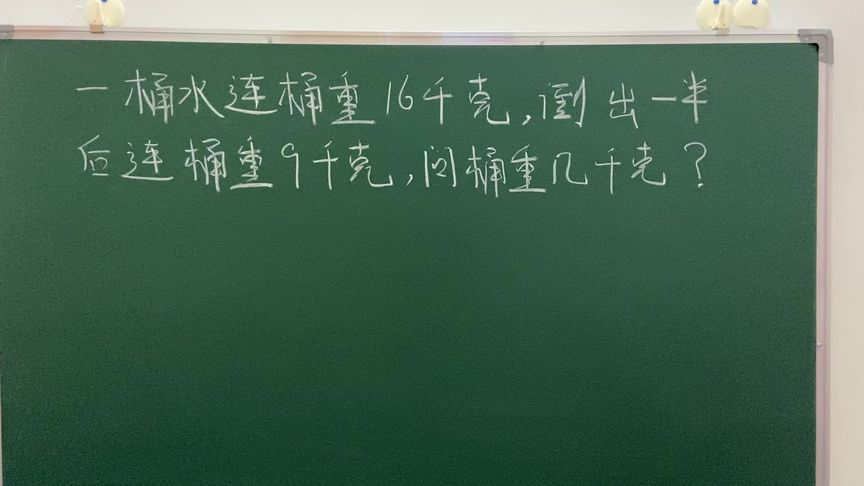 一桶水连桶重16千克,倒出一半
后连桶重9千克,问桶重几千克?